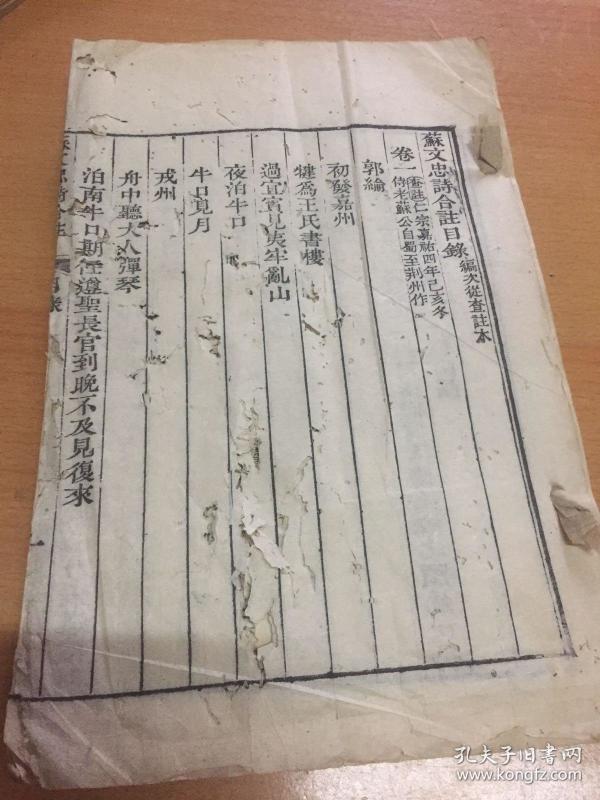 蘇文忠詩合註目錄 編次從查註本
卷一 查註仁宗嘉祐四年己亥冬
侍老蘇公自蜀至荆州作
郭綸
初發嘉州
犍爲王氏書樓
過宜賓見夷牢亂山
夜泊牛口
牛口見月
戎州
舟中聽大人彈琴
泊南牛口期任遵聖長官到晚不及見復來
孔夫子旧书网
www.kongfz.com